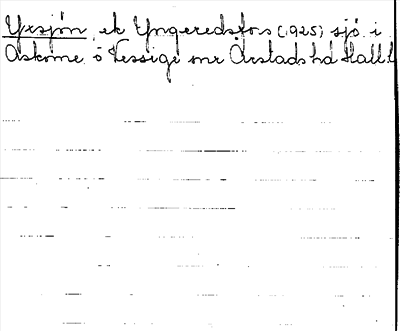 Yxsjön, ek Yngeredsfors (1925) sjö i
Askome o Vessige snr Årstads hd Hall l